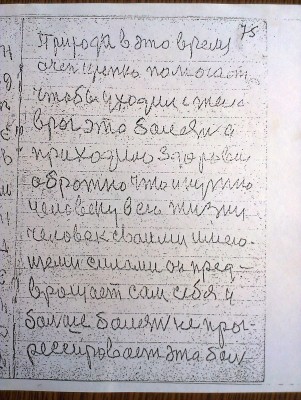 75
Природа в это время
очен щепко помогает
чтобы уходил с тела
враг эта болезн а
приходило здоровия
обротно что и нужно
человеку в его жизни
человек своими имею-
щеми силами он пред-
вращает сам себя и
болше болезн не про-
рессировает эта бол